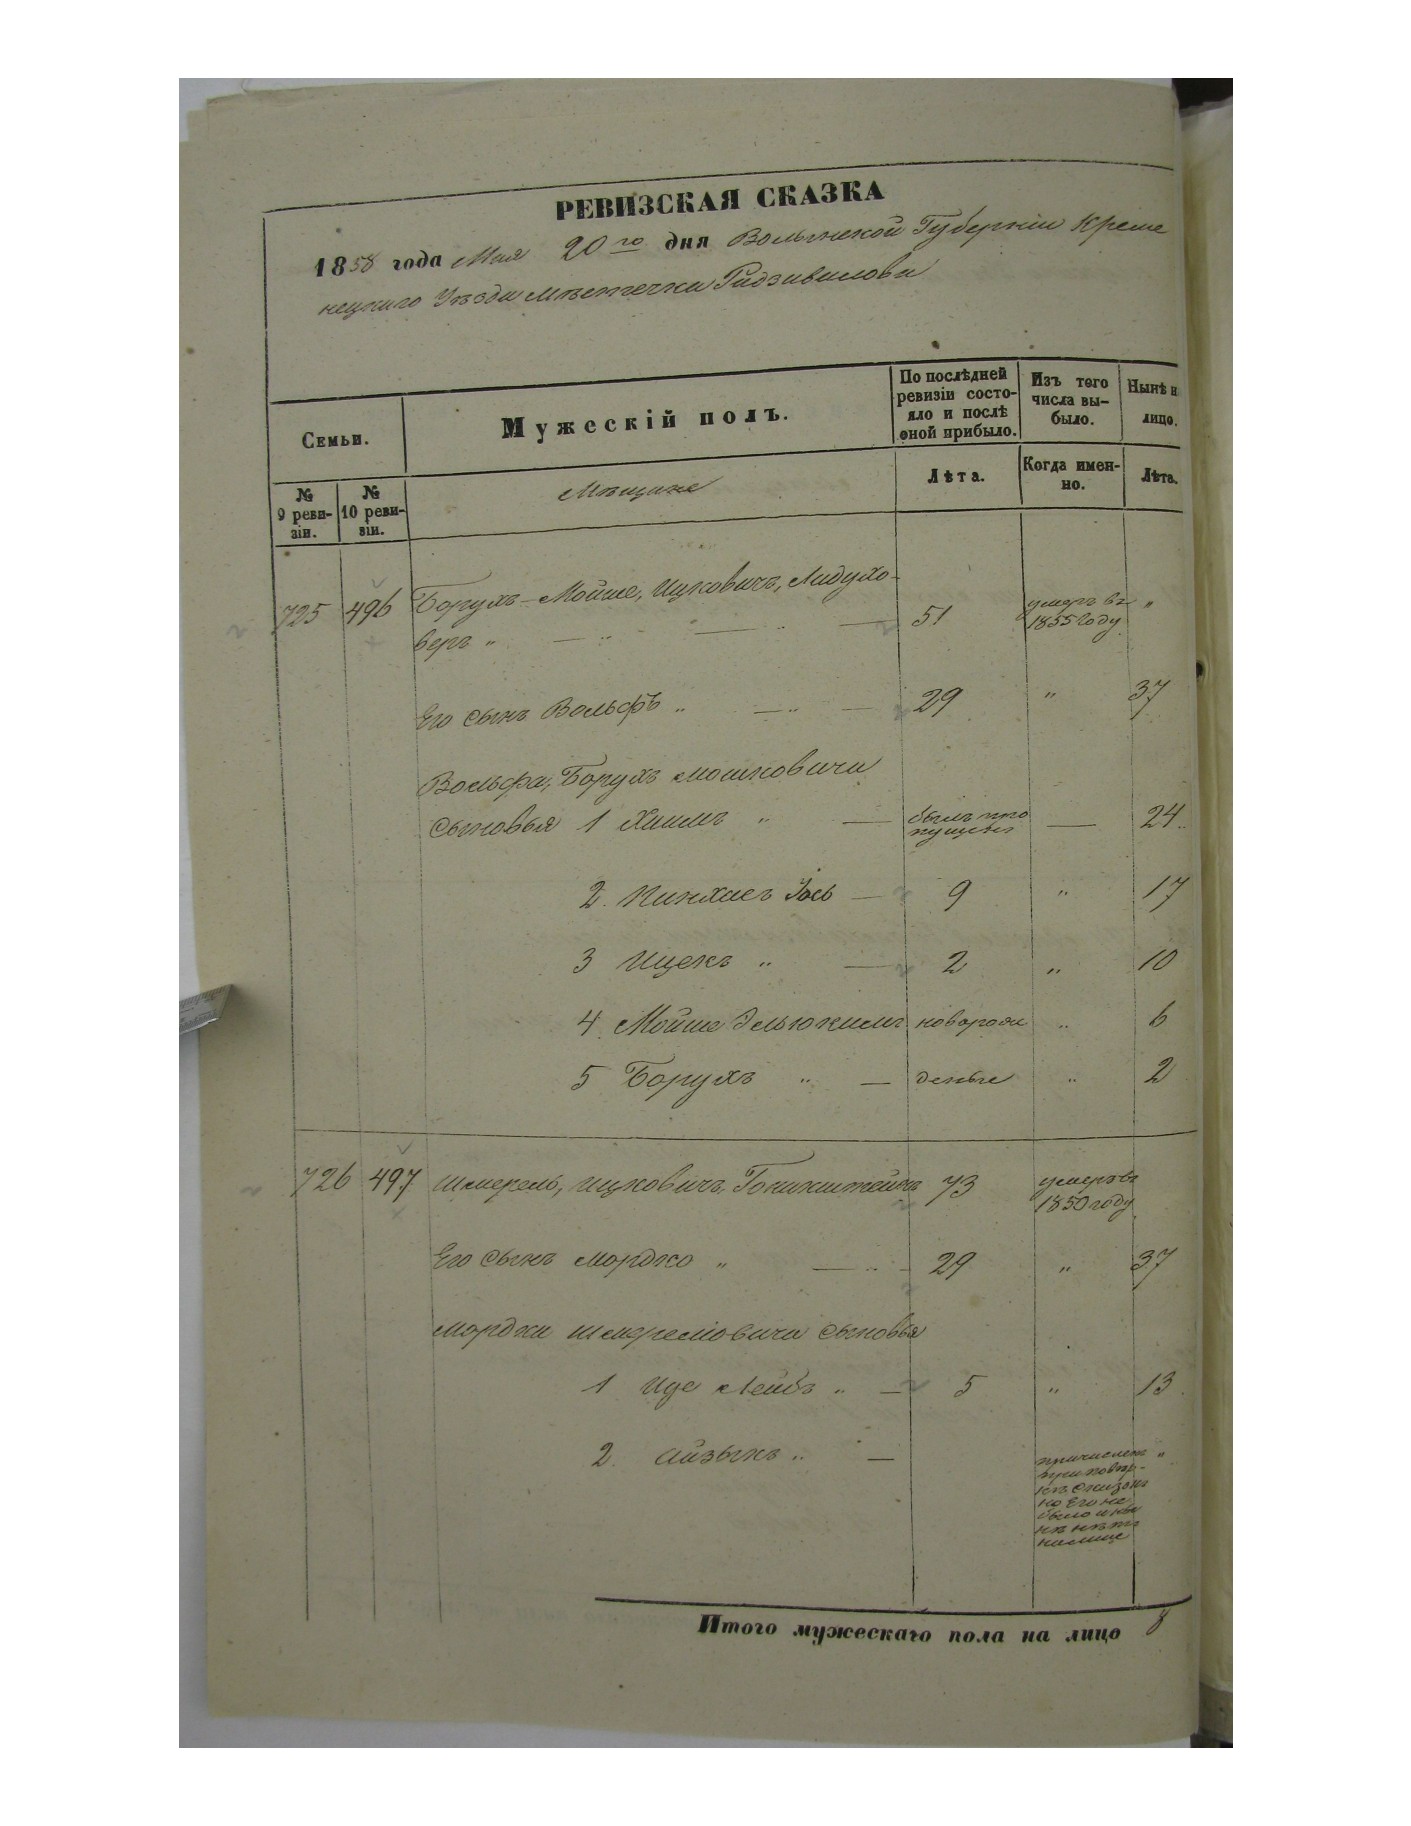 РЕВИЗСКАЯ СКАЗКА
1858 года Мая 20го дня Волынской Губерніи Креме
нецкаго Уѣзда Мѣстечка Радзивилова
Семьи.
Мужескій полъ.
По послѣдней ревизіи состояло и послѣ оной прибыло.
Изъ того числа вы-было.
Нынѣ н лицо.
№ 9 реви-зіи.
№ 10 реви-зіи.
Мѣщане
Лѣта.
Когда имен-но.
Лѣта.
725 496 Борухъ-Мойше, Ицковичъ, Лидухо- 51 умеръ въ 1855 году "
веръ "
Его сынъ Вольфъ " 29 " 37
Вольфа, Борухъ Мошковича
сыновья 1 Хаимъ " былъ пропущенъ — 24
2. Пинхасъ Іось 9 " 17
3 Ицекъ " 2 " 10
4. Мойше Эльюкимъ новорож " 6
5 Борухъ " денные " 2
726 497 Шмерель, Ицковичъ, 73 умеръ въ 1850 году
Его сынъ Мордко " 29 " 37
Мордки Шмерелiовича сыновья
1 Ице Лейбъ " 5 " 13
2. Айзыкъ " — причисленъ "
Итого мужескаго пола на лицо 8